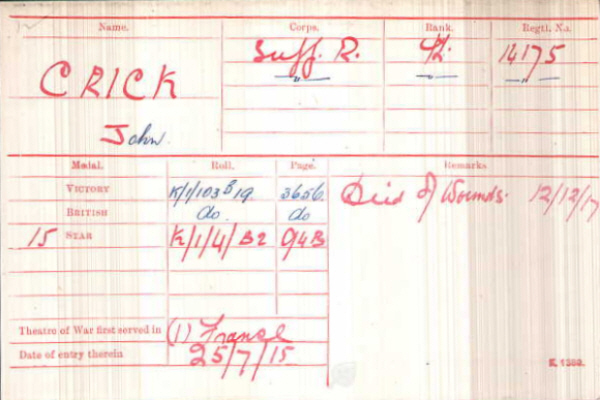 Name. Corps. Rank. Regtl. No.
CRICK Suff. R. Pt. 14175
" " "
John
Medal. Roll. Page. Remarks
VICTORY K/1/103 B19. 3656. Died of Wounds. 12/12/17
BRITISH do. do
15 STAR K/1/4/B2 94B
Theatre of War first served in (1) France
Date of entry therein 25/7/15
K. 1380.